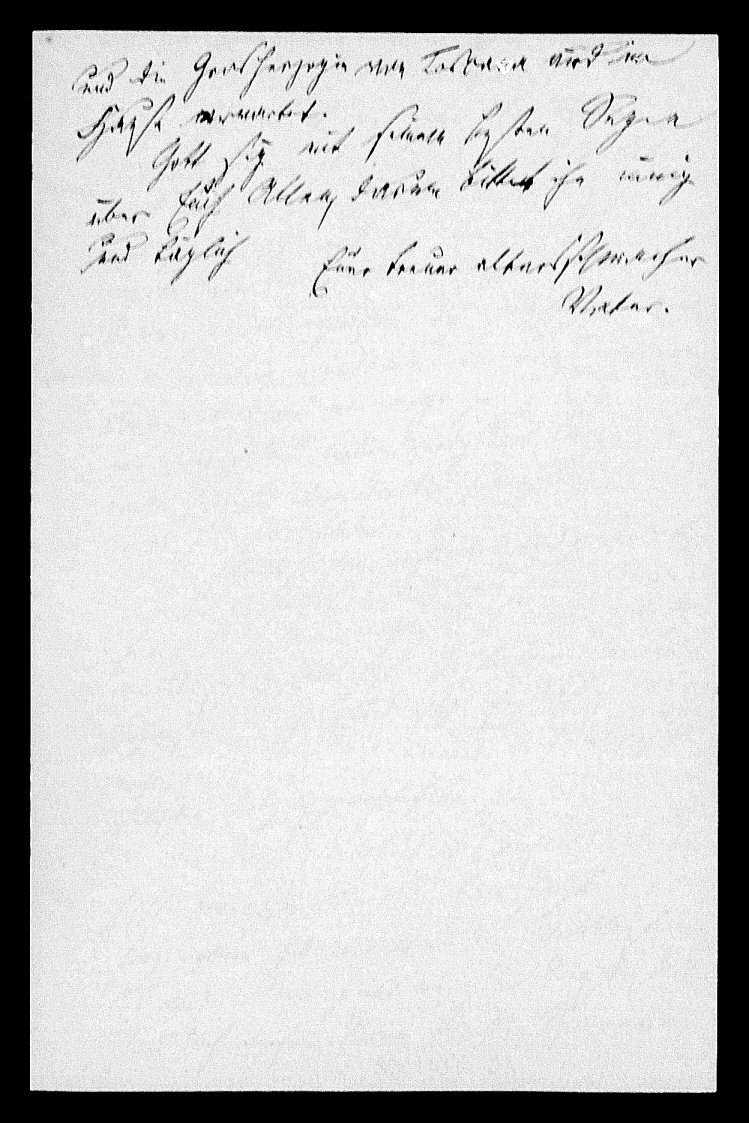 und die Grosherzogin von Toskana wird im
Hause erwartet.
Gott sey mit seinem besten Segen
über Euch Allen, darum bittet ihn innig
und täglich
Euer treuer altersschwacher
Vater.